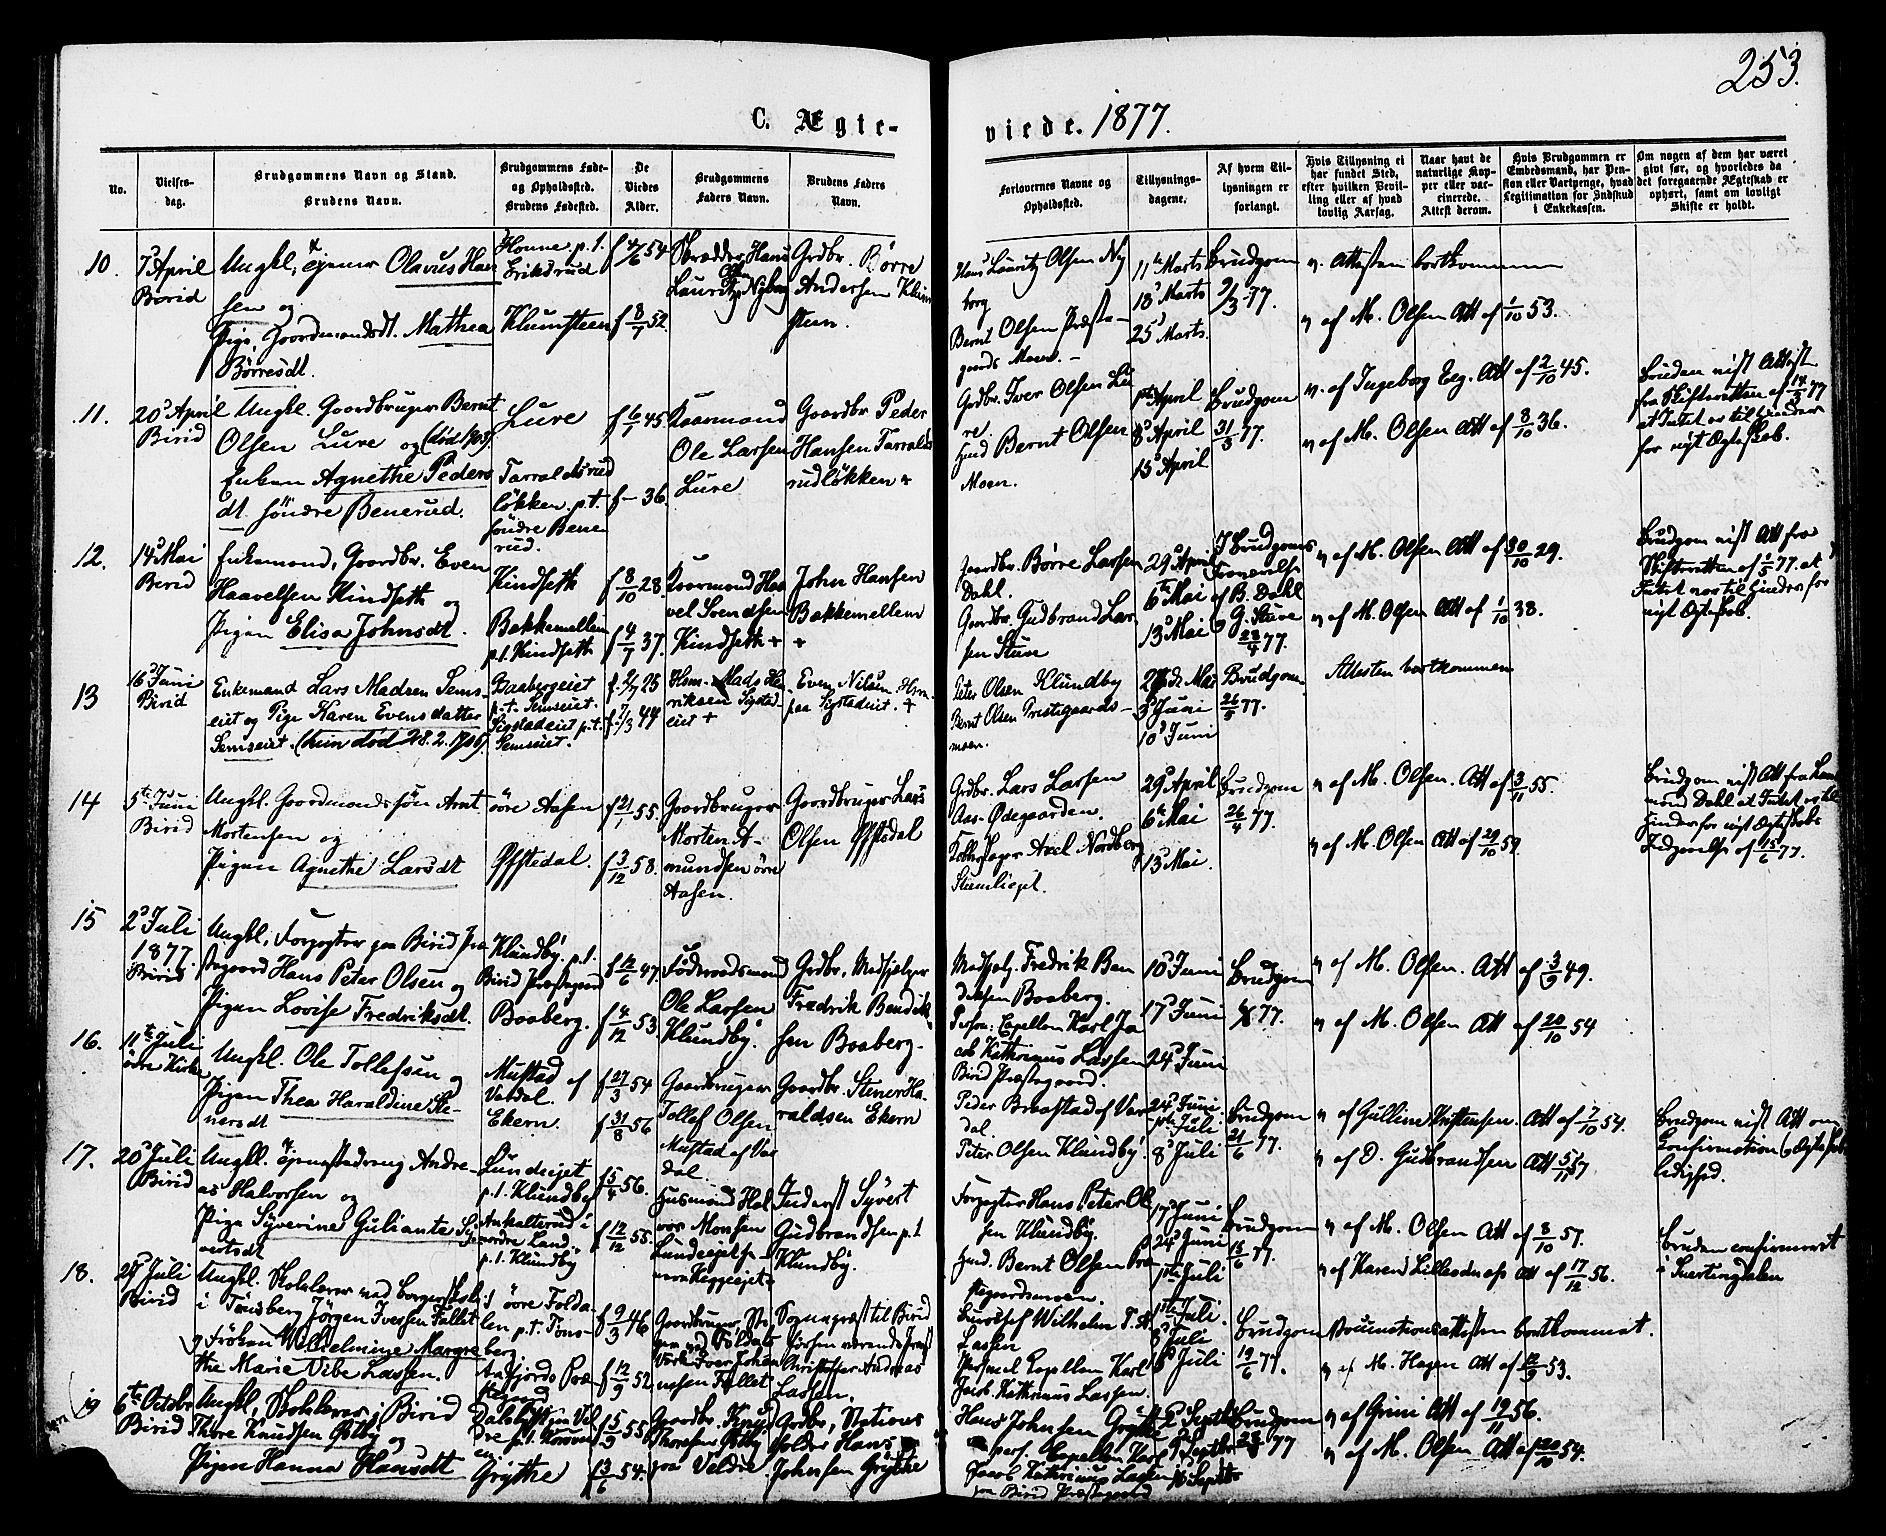 253.
C. Ægte-
viede. 1877.
No.
Vielses-
dag.
Brudgommens Navn og Stand.
Brudens Navn.
Brudgommens Føde-
og Opholdssted.
Brudens Fødested.
De
Viedes
Alder.
Brudgommens
Faders Navn.
Brudens Faders
Navn.
Forlovernes Navne og
Opholdssted.
Tillysnings-
dagene.
Af hvem Til-
lysningen er
forlangt.
Hvis Tillysning ei
har fundet Sted,
efter hvilken Bevil-
ling eller af hvad
lovlig Aarsag.
Naar havt de
naturlige Kop-
per eller vac-
cinerede.
Attest derom.
Hvis Brudgommen er
Embedsmand, har Pen-
sion eller Vartpenge, hvad
Legitimation for Indskud
i Enkekassen.
Om nogen af dem har været
givt før, og hvorledes da
det foregaaende Ægteskab er
ophørt, samt om lovligt
Skifte er holdt.
10.
7 April
Birid
Ungkl, Olavus Han
sen og
Pige, Gaardmandsdt. Mathea
Børresdt.
Honne p.t.
Eriksrud
Klumsteen
f 4/6 54
f 8/7 52
Skrædder Hans
Lauritz Nyborg
Grdbr. Børre
Andersen Klum
steen.
Hans Lauritz Olsen Ny
borg
Bernt Olsen Præste-
gaards Moen.
11te Marts
18 Marts
25 Marts.
Brudgom
2/3 77.
v. Attesten bortkommen
v af M. Olsen Att af 1/10 53.
11.
20 April
Birid
Ungkl. Gaardbruger Bernt
Olsen Lure og (død 1903)
Enken Agnethe Peders
dt. söndre Benerud.
Lure
Tarraldsrud
løkken p.t.
söndre Bene
rud.
f 6/7 45
f - 36.
Kaarmand
Ole Larsen
Lure
Gaardbr. Peder
Hansen Tarralds
rudløkken +
Grdbr. Iver Olsen Lu
re
Hmd Bernt Olsen
Moen.
1ste April
8 April
15 April
Brudgom
31/3 77.
v. af Ingeborg Eeg. Att af 2/10 45.
v af M. Olsen Att af 8/10 36.
Bruden vist Attest
fra Skifteretten af 14/3 77
at Intet er til Hinder
for nyt Ægteskab.
12.
14 Mai
Birid
Enkemand, Gaardbr. Even
Haavelsen Kindseth og
Pigen Elisa Johnsdt.
Kindseth
Bakkemellem
p.t. Kindseth
f 8/10 28
f 4/7 37.
Kaarmand Haa
vel Svendsen
Kindseth +
John Hansen
Bakkemellem
+
Gaardbr. Børre Larsen
Dahl.
Gaardbr. Gudbrand Lar
sen Stuve
29 April
6te Mai
13 Mai
I Brudgoms
af B. Dahl
& G. Stuve
28/4 77.
v af M. Olsen Att af 30/10 29.
v af M. Olsen Att af 1/10 38.
Brudgom vist Att fra
Skifteretten af 1/5 77. at
Intet var til Hinder for
nyt Ægteskab.
13
16 Juni
Birid
Enkemand Lars Madsen Sems-
eiet og Pige Karen Evensdatter
Semseiet. (hun død 28.2.1906).
Baabergeiet
p.t. Semseiet.
Sigstadeiet p.t.
Semseiet.
f. 2/7 25
f. 7/3 44
Hsm. Mads He
riksen Sigstad
eiet +
Even Nilsen Hsm
paa Sigstadeiet. +
Peter Olsen Klundby
Bernt Olsen Prestegaards-
moen.
27de Mai
3 Juni
10 Juni
Brudgom
26/5 77.
Attesten bortkommen
14
5te Juni
Birid
Ungkl. Gaardmandssøn Arnt
Mortensen og
Pigen Agnethe Larsdt
øvre Aasen
Offstedal.
f 21/1 55.
f 3/12 58.
Gaardbruger
Morten A-
mundsen øvre
Aasen.
Gaardbruger Lars
Olsen Offstdal
Grdbr. Lars Larsen
Aas-Ødegaarden.
Axel Nordberg
29 April
6te Mai
13 Mai.
Brudgom
26/4 77.
v af M. Olsen. Att af 3/11 55.
v af M. Olsen Att af 29/10 59.
Brudgom vist Att fra Lens
mand Dahl at Intet er til
Hinder for nyt Ægteskabs
Indgaaelse af 15/6 77.
15
2 Juli
1877.
Birid
Ungkl, Forpagter paa Birid Præ
stegaard Hans Peter Olsen og
Pigen Lovise Fredriksdt.
Klundby p.t.
Birid Præstegaard
Baaberg.
f 12/6 47
f 4/12 53
Føderaadsmand
Ole Larsen
Klundby.
Grdbr. Medhjelper
Fredrik Bendik
sen Baaberg.
Medhjelp. Fredrik Ben
diksen Baaberg.
Person: Capellan Karl Ja
cob Kathrinus Lassen
Birid Præstegaard.
10 Juni
17 Juni
24 Juni
Brudgom
77.
v af M. Olsen. Att af 3/9 49.
v af M. Olsen Att af 20/10 54
16.
11te Juli
Øvre Kirke
Ungkl. Ole Tollefsen og
Pigen Thea Haraldine Ste-
nersdt
Mustad af
Vardal.
Ekern.
f 27/3 54
f 31/8 56
Gaardbruger
Tollef Olsen
Mustad af Var
dal.
Gaardbr. Stener Ha-
raldsen Ekern
Peder Braastad af Var
dal.
Peter Olsen Klundby.
24 Juni.
1ste Juli.
8 Juli
Brudgom
21/6 77.
v af Gulline Kristensen. Att af 7/10 54.
v af D. Gudbrandsen Att 5/11 57
Brudgom vist Att om
Confirmation & Ægteskabs
ledighed.
17.
20 Juli
Birid
Ungkl. Tjenestedreng Andre-
as Halvorsen og
Pige Syverine Guliante Sy-
vertsdt
Lundeeiet
p.t. Klundby
nordre Land.
p.t. Klundby
f 5/4 56.
f 12/12 55.
Husmand Hal
vor Monsen
Lundeeiet
Inderst Syvert
Gudbrandsen p.t
Klundby.
Forpagter Hans Peter Ol
sen Klundby.
Hmd. Bernt Olsen Præ
stegaardsmoen.
17 Juni
24 Juni
1ste Juli
Brudgom
13/6 77.
v af M. Olsen Att af 8/10 57.
v af Karen Lillesdnes Att af 17/12 56.
Bruden confirmeret
i Snertingdalen
18.
27 Juli
Birid
Ungkl. Skolelærer ved Borgerskole
i Tønsberg Jörgen Iversen Fallet
& Frøken Wilhelmine Margre
the Marie Vibe Lassen.
øvre Folda-
len p.t. Tøns-
berg.
Aafjords Præ
stegaard
f 9/3 46
f 12/9 52
Gaardbruger
Iver Johan
nesen Fallet
Sognepræst til Birid
Christoffer Andreas
Lassen.
Wilhelm
Lassen
Personel Capellan Karl
Jacob Kathrinus Lassen.
1ste Juli.
8 Juli
Brudgom
19/6 77.
Vaccinationsattesten bortkommet.
v af M. Hagen Att af 12/9 53.
19
6te Octobr
Birid
Ungkl, Skolelærer i Birid
Thore Knudsen Østby og
Pigen Hanna Hansdt
Grythe
f 5/9 55
f 3/6 54.
Gaardbr. Knud
Thoresen Østby
paa Veldre
Grdbr, Stations
holder Hans
Johnsen Grythe
Hans Johnsen Grythe
pers. Capellan Karl
Jacob Kathrinus Lassen
paa Birid Præstegaard
2 Septbr
9 Septbr
16 Septbr
Brudgom
77
v af Grini Att af 19/11 56.
v af M. Olsen Att af 20/10 54.